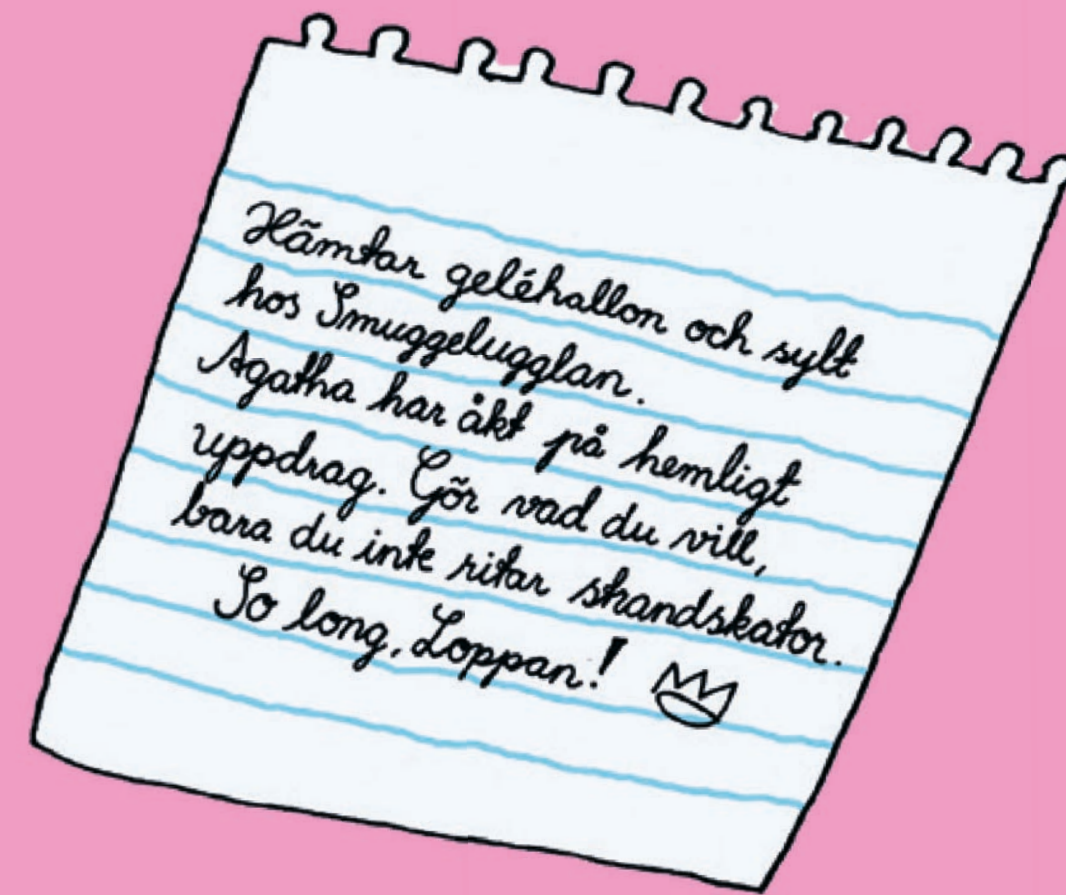 Hämtar geléhallon och sylt
hos Smuggelugglan.
Agatha har åkt på hemligt
uppdrag. Gör vad du vill,
bara du inte ritar strandskator.
So long, Loppan!